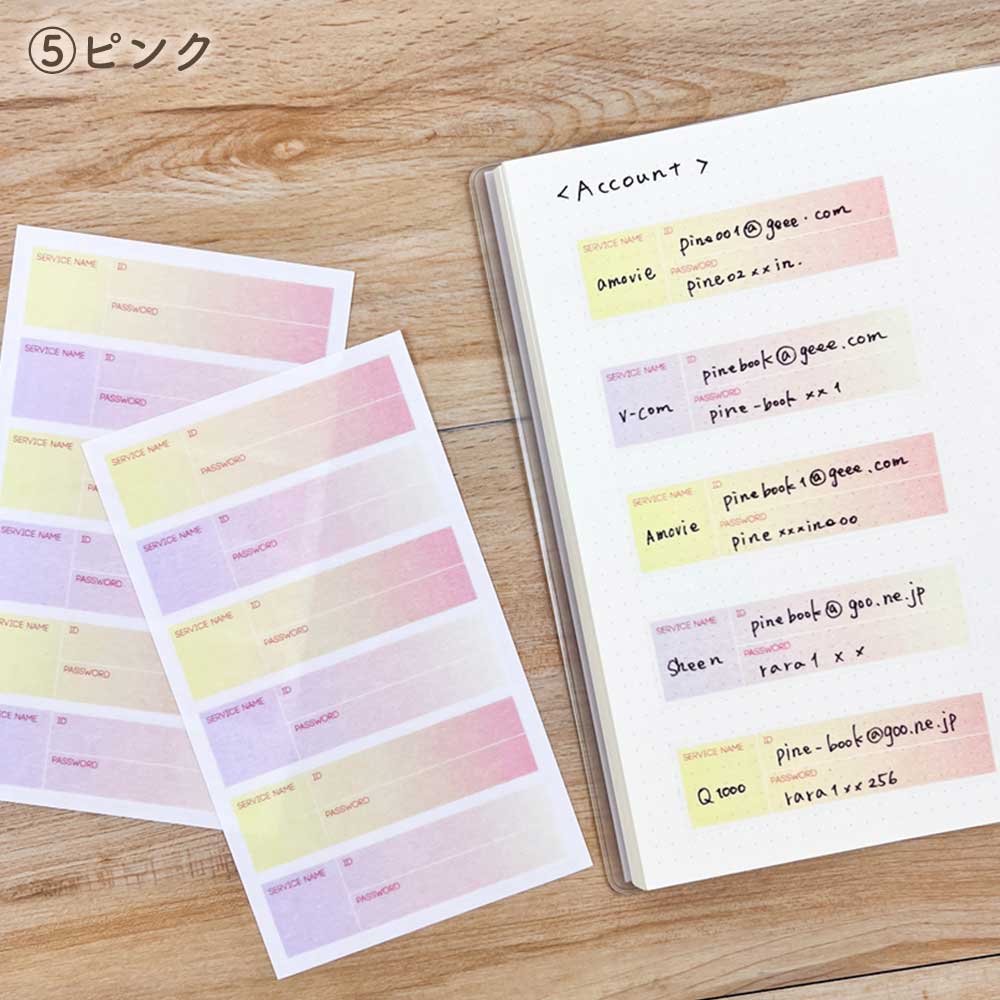 ⑤ピンク
<Account>
SERVICE NAME ID pine001@geee.com
amovie PASSWORD pine02xxin.
SERVICE NAME ID pinebook@geee.com
V-com PASSWORD pine-book xx1
SERVICE NAME ID pinebook1@geee.com
Amovie PASSWORD pine xxxine00
SERVICE NAME ID pinebook@goo.ne.jp
Sheen PASSWORD rara1 x x
SERVICE NAME ID pine-book@goo.ne.jp
Q1000 PASSWORD rara1xx256
SERVICE NAME ID
PASSWORD
SERVICE NAME ID
PASSWORD
SERVICE NAME ID
PASSWORD
SERVICE NAME ID
PASSWORD
SERVICE NAME ID
PASSWORD
SERVICE NAME ID
PASSWORD
SERVICE NAME ID
PASSWORD
SERVICE NAME ID
PASSWORD
SERVICE NAME ID
PASSWORD
SERVICE NAME ID
PASSWORD
SERVICE NAME ID
PASSWORD
SERVICE NAME ID
PASSWORD